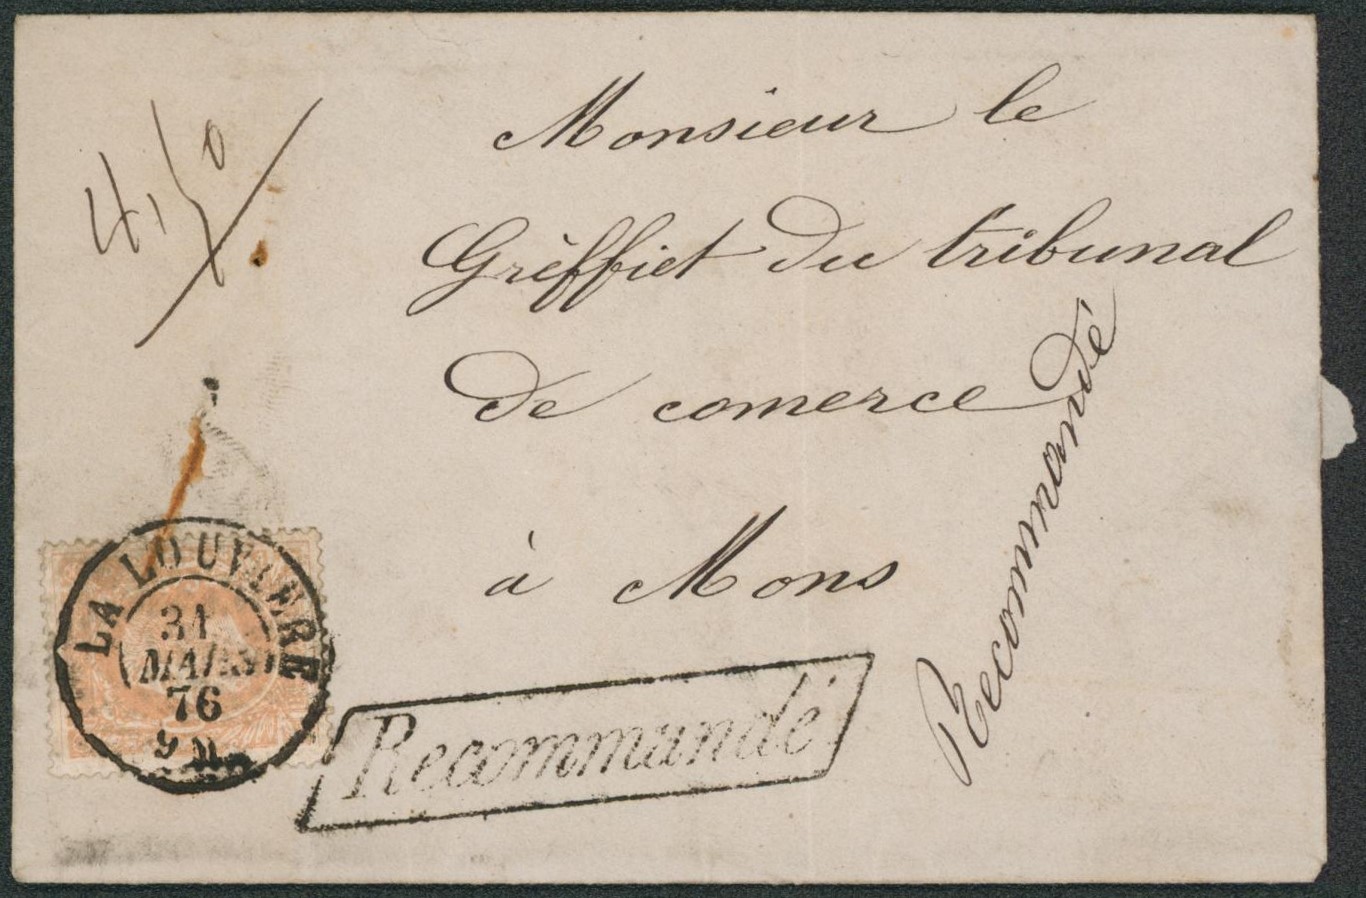 Monsieur le
Grèffiet du tribunal
de comerce
à Mons
Recommandé
LA LOUVIERE
31
MARS
76
9 M
Recommandé